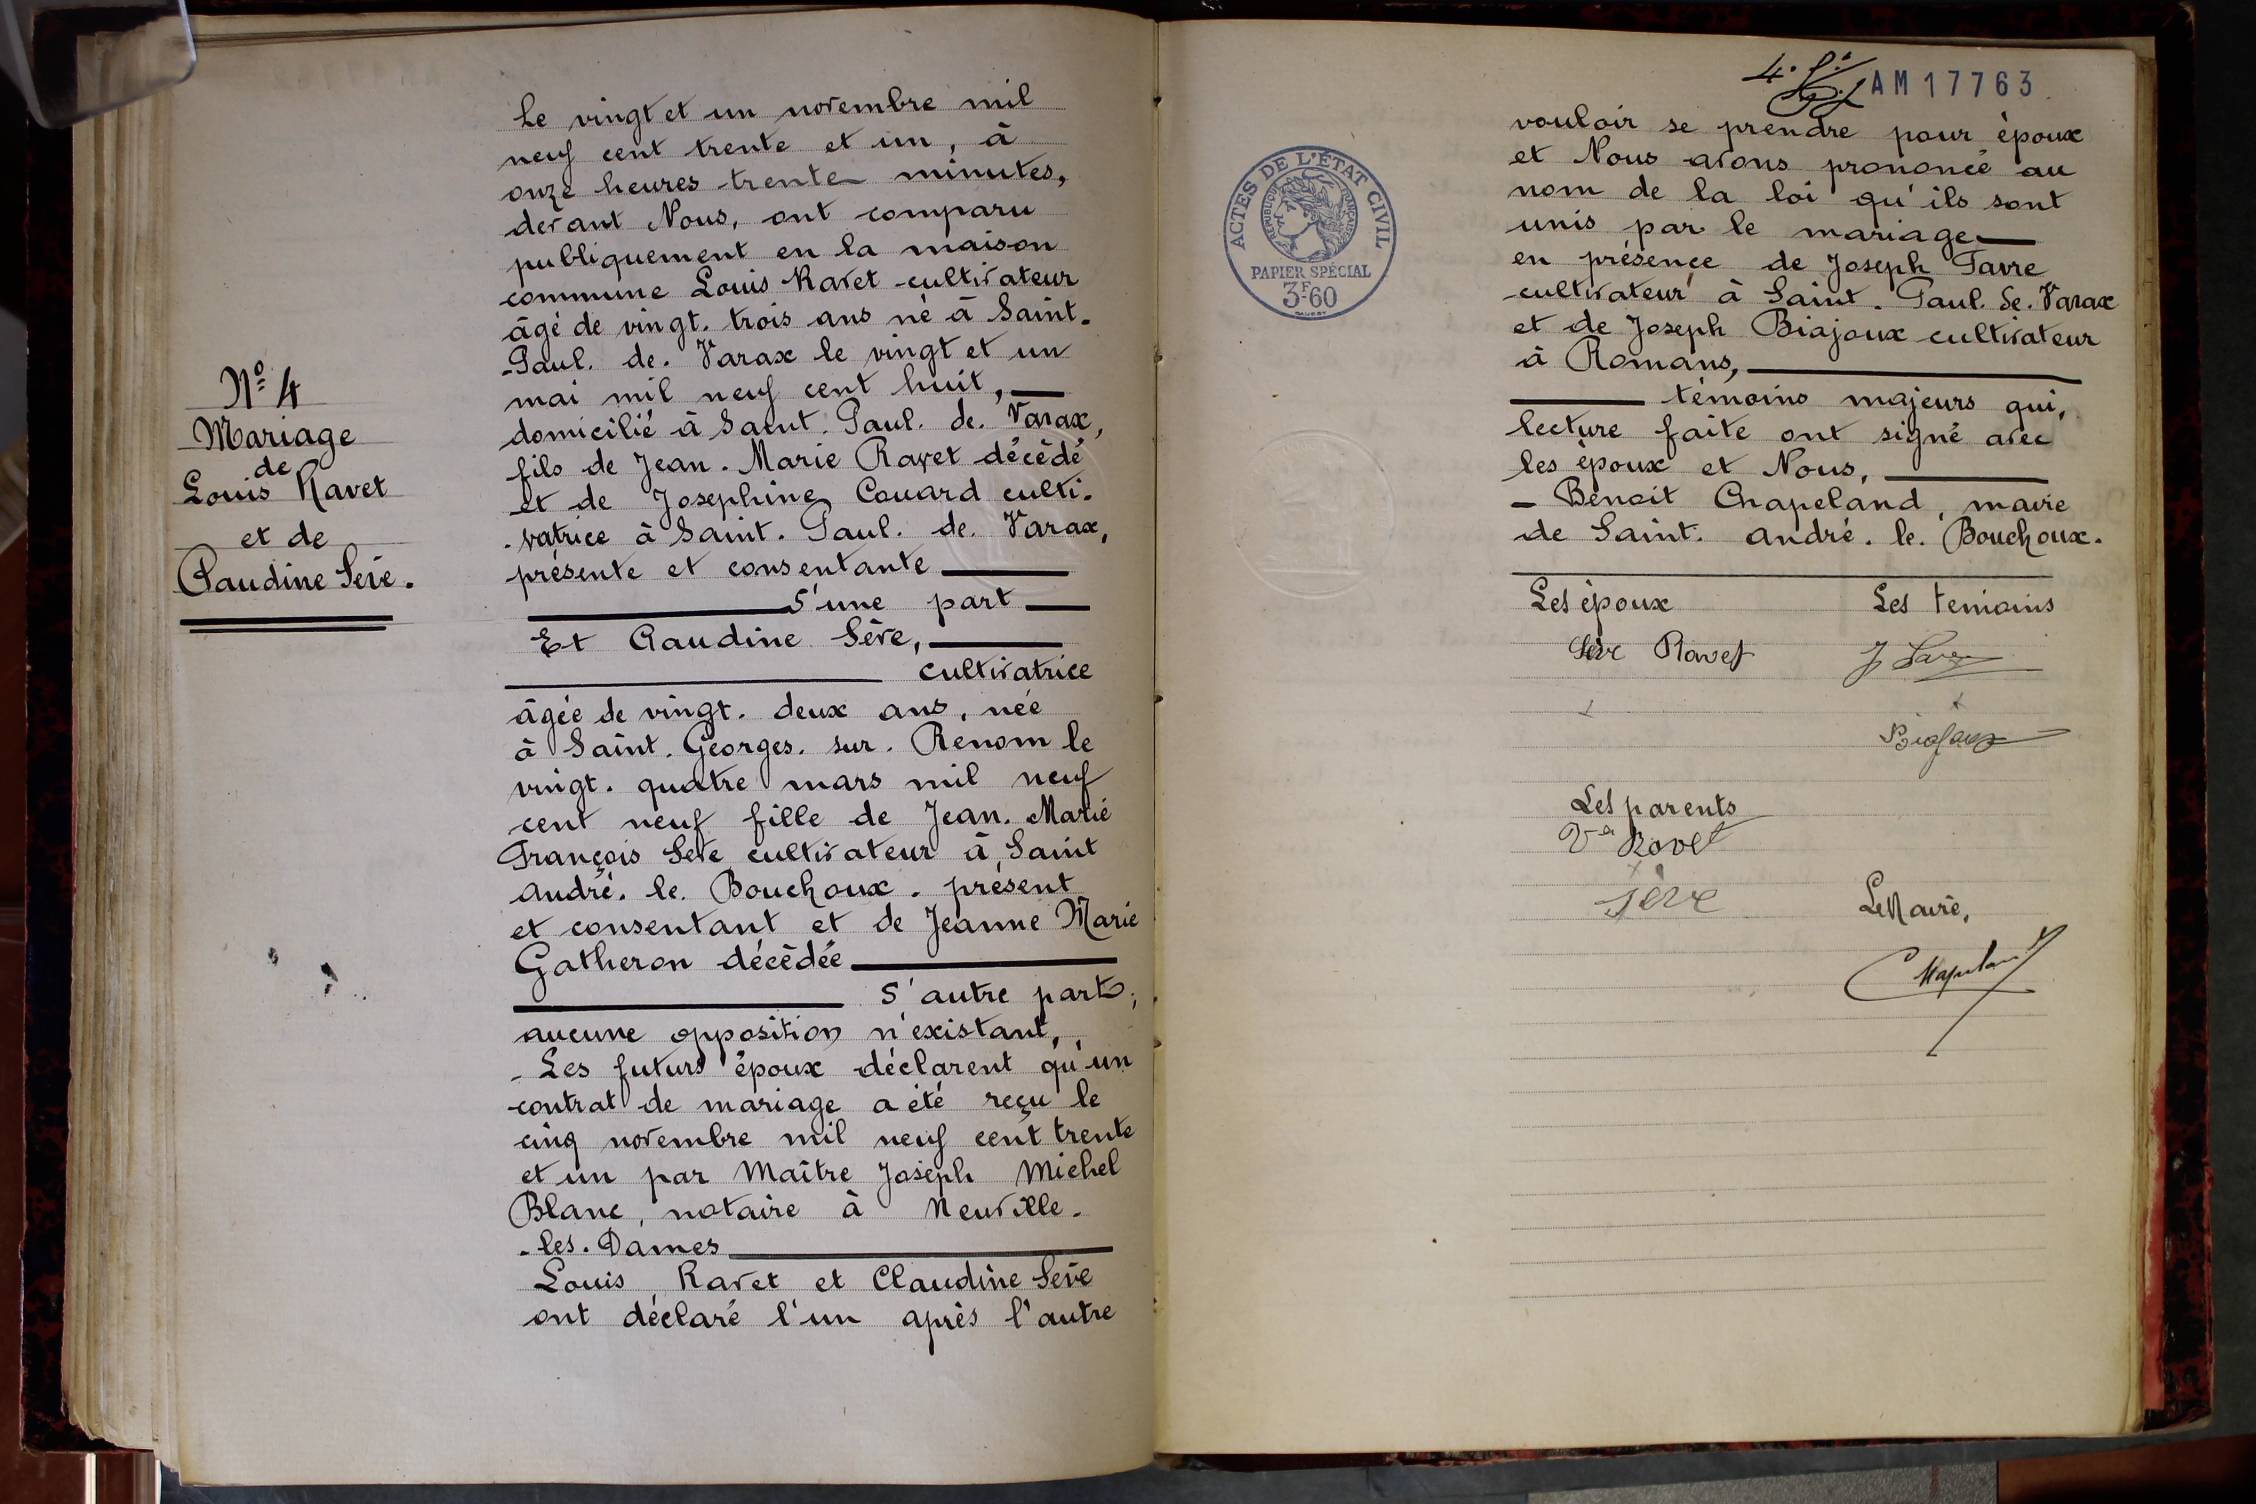 Nº 4
Mariage
de
Louis Ravet
et de
Claudine Sève.
Le vingt et un novembre mil
neuf cent trente et un, à
onze heures trente minutes,
devant Nous, ont comparu
publiquement en la maison
commune Louis Ravet cultivateur
âgé de vingt. trois ans né à Saint.
Paul. de. Varax le vingt et un
mai mil neuf cent huit,
domicilié à Saint. Paul. de. Varax,
fils de Jean. Marie Ravet décédé
et de Josephine Couard culti.
. vatrice à Saint. Paul. de. Varax,
présente et consentante
d'une part
Et Claudine Sève,
cultivatrice
âgée de vingt. deux ans, née
à Saint. Georges. sur. Renom le
vingt. quatre mars mil neuf
cent neuf fille de Jean. Marie
François Sève cultivateur à Saint
André. le. Bouchoux. présent
et consentant et de Jeanne Marie
Gatheron décédée
d'autre part;
aucune opposition n'existant,
- Les futurs époux déclarent qu'un
contrat de mariage a été reçu le
cinq novembre mil neuf cent trente
et un par Maître Joseph Michel
Blanc, notaire à Neuville.
. les. Dames
Louis Ravet et Claudine Sève
ont déclaré l'un après l'autre
AM17763
ACTES DE L'ÉTAT CIVIL
RÉPUBLIQUE FRANÇAISE
PAPIER SPÉCIAL
3F60
vouloir se prendre pour époux
et Nous avons prononcé au
nom de la loi qu'ils sont
unis par le mariage
en présence de Joseph Favre
cultivateur à Saint. Paul. de. Varax
et de Joseph Biajoux cultivateur
à Romans,
témoins majeurs qui,
lecture faite ont signé avec
les époux et Nous,
- Benoit Chapeland, maire
de Saint. André. le. Bouchoux.
Les époux Les temoins
Sève Ravet J Favre
Biajoux
Les parents
Vve Ravet
Sève
Le Maire,
Chapeland